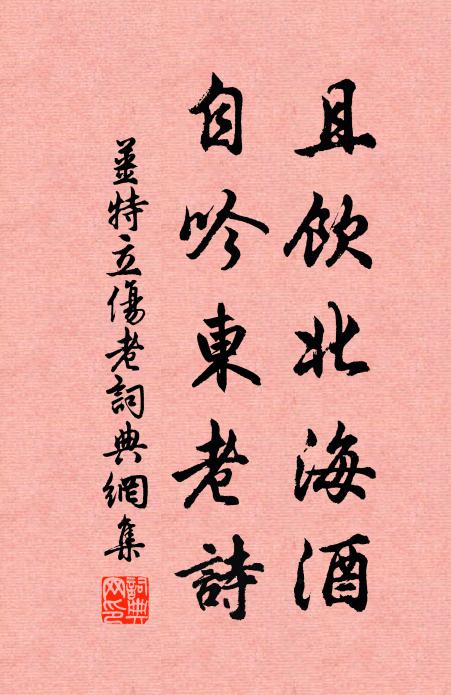 且飲北海酒
自吟東老詩
姜特立傷老詞典網集
詞典網印